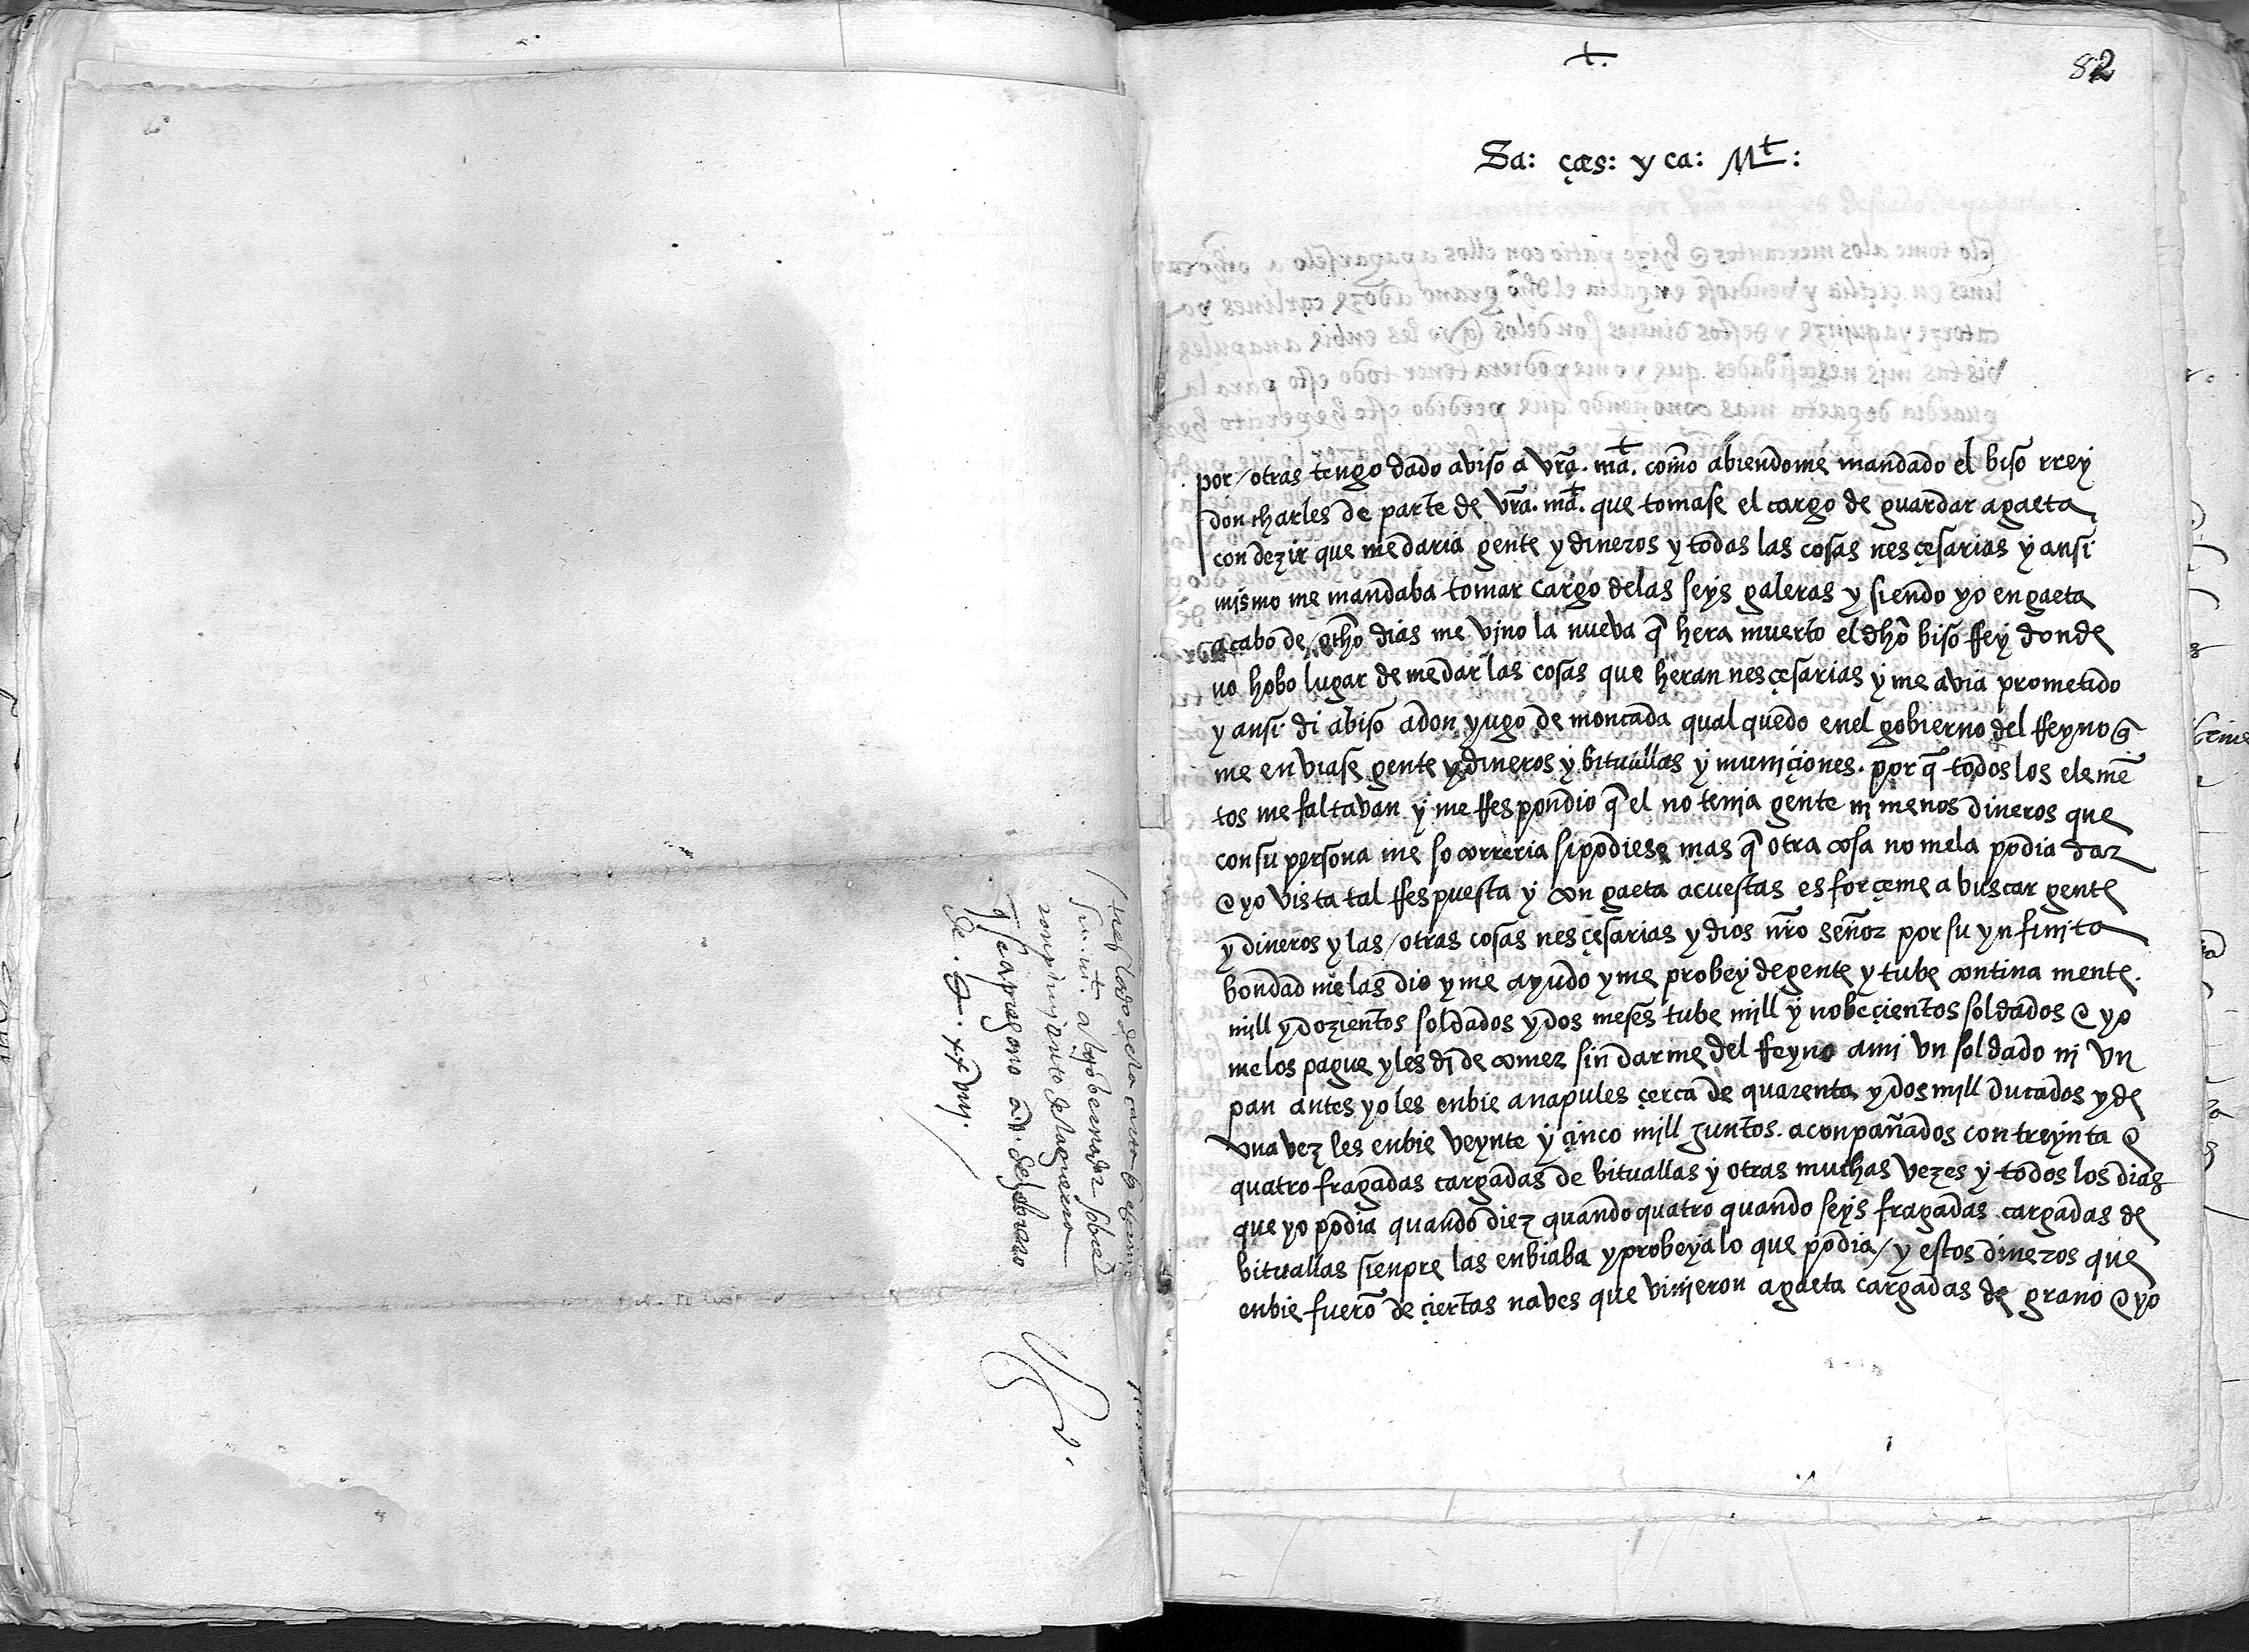 treslado dela carta q̄ escrivio
su mt. al gobernador sobre el
ronpimiento dela guerra
q̄ se apregono a. de henero
de. xxviij.
+.
82
Sa: çes: y ca: Mt:
por/otras tengo dado aviso a vr̄a. mat. como abiendome mandado el biso rrey
don charles de parte de vr̄a. mat. que tomase el cargo de guardar a gaeta
con dezir que me daria gente y dineros y todas las cosas nesçesarias y ansi
mismo me mandaba tomar cargo delas seys galeras y siendo yo en gaeta
a cabo de/otho dias me vjno la nueba q̄ hera muerto el dho biso rrey donde
no hobo lugar de me dar las cosas que heran nesçesarias y me avia prometido
y ansi di abiso a don yugo de moncada qual quedo enel gobierno del rreyno q̄
me enviase gente y dineros y bituallas y munjçiones. por q̄ todos los elemē
tos me faltavan y me rrespondio q̄ el no tenja gente nj menos dineros que
con su persona me socorreria si podiese mas q̄ otra cosa no mela podia dar
e yo vista tal rrespuesta y con gaeta acuestas esforçeme a buscar gente
y dineros y las/otras cosas nesçesarias y dios nr̄o señor por su ynfinjta
bondad me las dio y me ayudo y me probey de gente y tube contina mente.
mjll y dozientos soldados y dos meses tube mjll y nobeçientos soldados e yo
me los pague y les dj de comer sin darme del rreyno a mj vn soldado nj vn
pan antes yo les enbie a napules çerca de quarenta y dos mjll ducados y de
vna vez les enbie veynte y çinco mjll juntos. aconpañados con treynta e
quatro fragadas cargadas de bituallas y otras muchas vezes y todos los dias
que yo podia quando diez quando quatro quando seys fragadas cargadas de
bituallas sienpre las enbiaba y probeya lo que podia/y estos dineros que
enbie fuerō de çiertas naves que vinjeron a gaeta cargadas de grano e yo